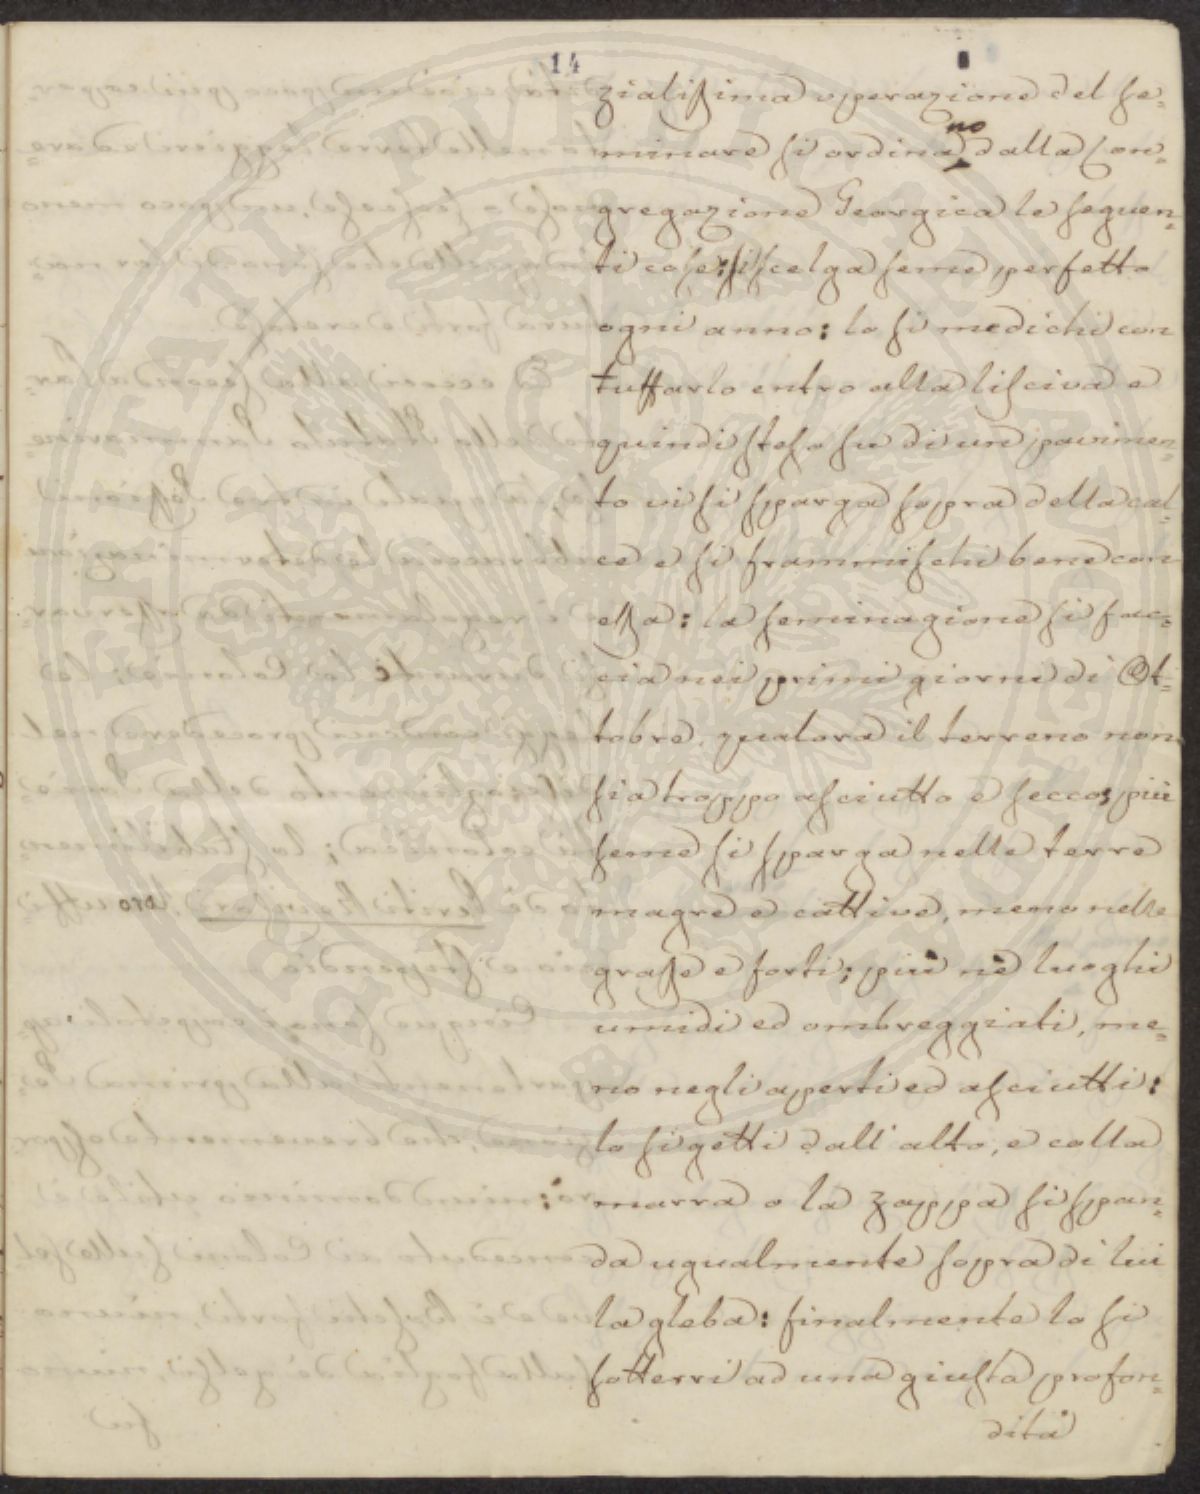 14
zialissima operazione del se=
minare si ordinano dalla Con=
gregazione Georgica le seguen=
ti cose: si scelga seme perfetto
ogni anno: lo si medichi con
tuffarlo entro alla lisciva e
quindi steso su di un pavimen=
to vi si sparga sopra della cal=
ce e si frammischi bene con
essa: la seminagione si fac=
cia nei primi giorni di Ot=
tobre, qualora il terreno non
sia troppo asciutto e secco; più
seme si sparga nelle terre
magre e cattive, meno nelle
grasse e forti; più ne luoghi
umidi ed ombreggiati, me=
no negli aperti ed asciutti:
lo si getti dall'alto, e colla
marra o la zappa si span=
da ugualmente sopra di lui
la gleba: finalmente lo si
sotterri ad una giusta profon=
dità